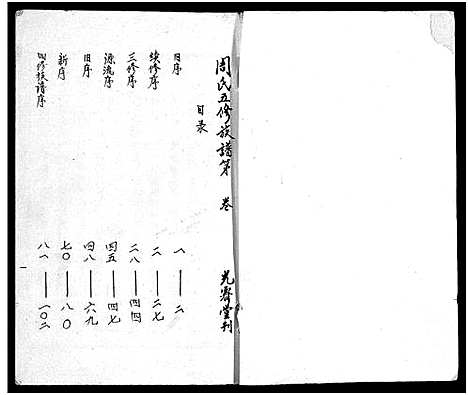 周氏五修族谱第 卷 光霁堂刊
目录
旧序 一——二
续修序 二——二七
三修序 二八——四四
源流序 四五——四七
旧序 四八——六九
新序 七〇——八〇
四修族谱序 八一——一〇二